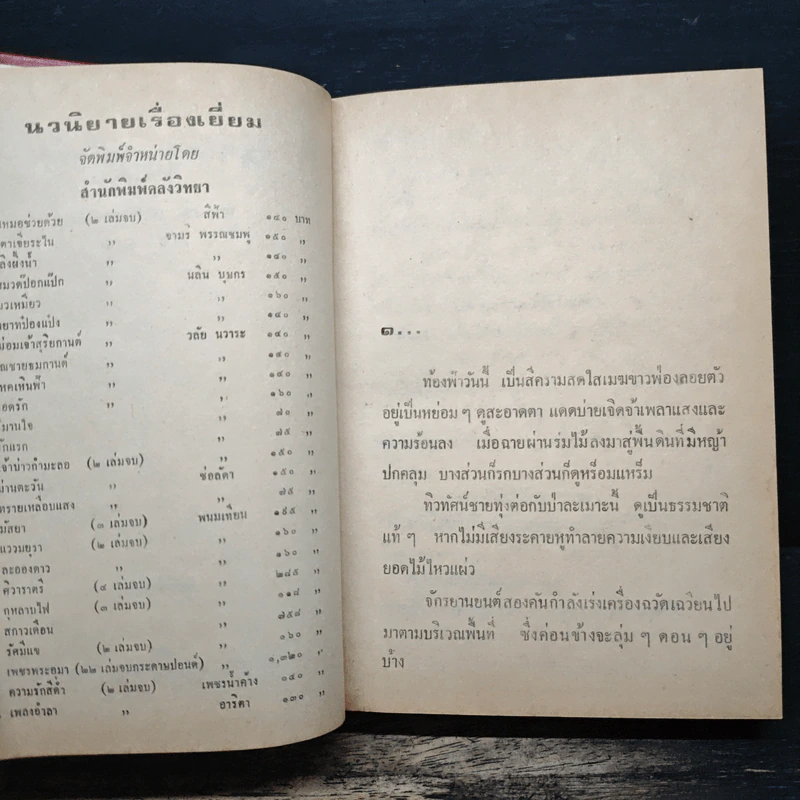 นวนิยายเรื่องเยี่ยม
จัดพิมพ์จำหน่ายโดย
สำนักพิมพ์คลังวิทยา
หมอช่วยด้วย (๒ เล่มจบ) สีฟ้า ๑๔๐ บาท
ตาเจียระไน ,, ชามรี พรรณชมพู ๑๕๐ ,,
ลิงผิ้งน้ำ ,, ,, ๑๔๐ ,,
มวดป๊อกแป๊ก ,, นลิน บุษกร ๑๕๐ ,,
วเหมียว ,, ,, ๑๖๐ ,,
ยาทป๋องแป๋ง ,, ,, ๑๔๐ ,,
ม่อมเจ้าสุริยกานต์ ,, วลัย นวาระ ๑๔๐ ,,
ณชายชมกานต์ ,, ,, ๑๕๐ ,,
หคเหินฟ้า ,, ,, ๑๔๐ ,,
อดรัก ,, ,, ๑๖๐ ,,
มานใจ ,, ๗๐ ,,
ักแรก ,, ๗๕ ,,
จ้าบ่าวกำมะลอ (๒ เล่มจบ) ,, ๑๕๐ ,,
ม่านตะวัน ,, ช่อลัดา ๑๕๐ ,,
ทรายเหลือบแสง ,, ,, ๗๕ ,,
มัสยา (๓ เล่มจบ) พนมเทียน ๑๙๕ ,,
แววมยุรา (๒ เล่มจบ) ,, ๑๖๐ ,,
ละอองดาว ,, ,, ๑๖๐ ,,
ศิวาราตรี (๔ เล่มจบ) ,, ๒๔๕ ,,
กุหลาบไฟ (๓ เล่มจบ) ,, ,,
สกาวเดือน ,, ,,
รัศมีแข (๒ เล่มจบ) ,, ๑๖๐ ,,
เพชรพระอุมา (๒๒ เล่มจบกระดาษปอนด์) ,, ๑,๓๒๐ ,,
ความรักสีดำ (๒ เล่มจบ) เพชรน้ำค้าง ๑๔๐ ,,
เพลงอำลา ,, อาริตา ๑๓๐ ,,
๑...
ท้องฟ้าวันนี้ เป็นสีความสดใสเมฆขาวฟ่องลอยตัว
อยู่เป็นหย่อม ๆ ดูสะอาดตา แดดบ่ายเจิดจ้าเพลาแสงและ
ความร้อนลง เมื่อฉายผ่านร่มไม้ลงมาสู่พื้นดินที่มีหญ้า
ปกคลุม บางส่วนก็รกบางส่วนก็ดูหร็อมแหร็ม
ทิวทัศน์ชายทุ่งต่อกับป่าละเมาะนี้ ดูเป็นธรรมชาติ
แท้ ๆ หากไม่มีเสียงระคายหูทำลายความเงียบและเสียง
ยอดไม้ไหวแผ่ว
จักรยานยนต์สองคันกำลังเร่งเครื่องฉวัดเฉวียนไป
มาตามบริเวณพื้นที่ ซึ่งค่อนข้างจะลุ่ม ๆ ดอน ๆ อยู่
บ้าง